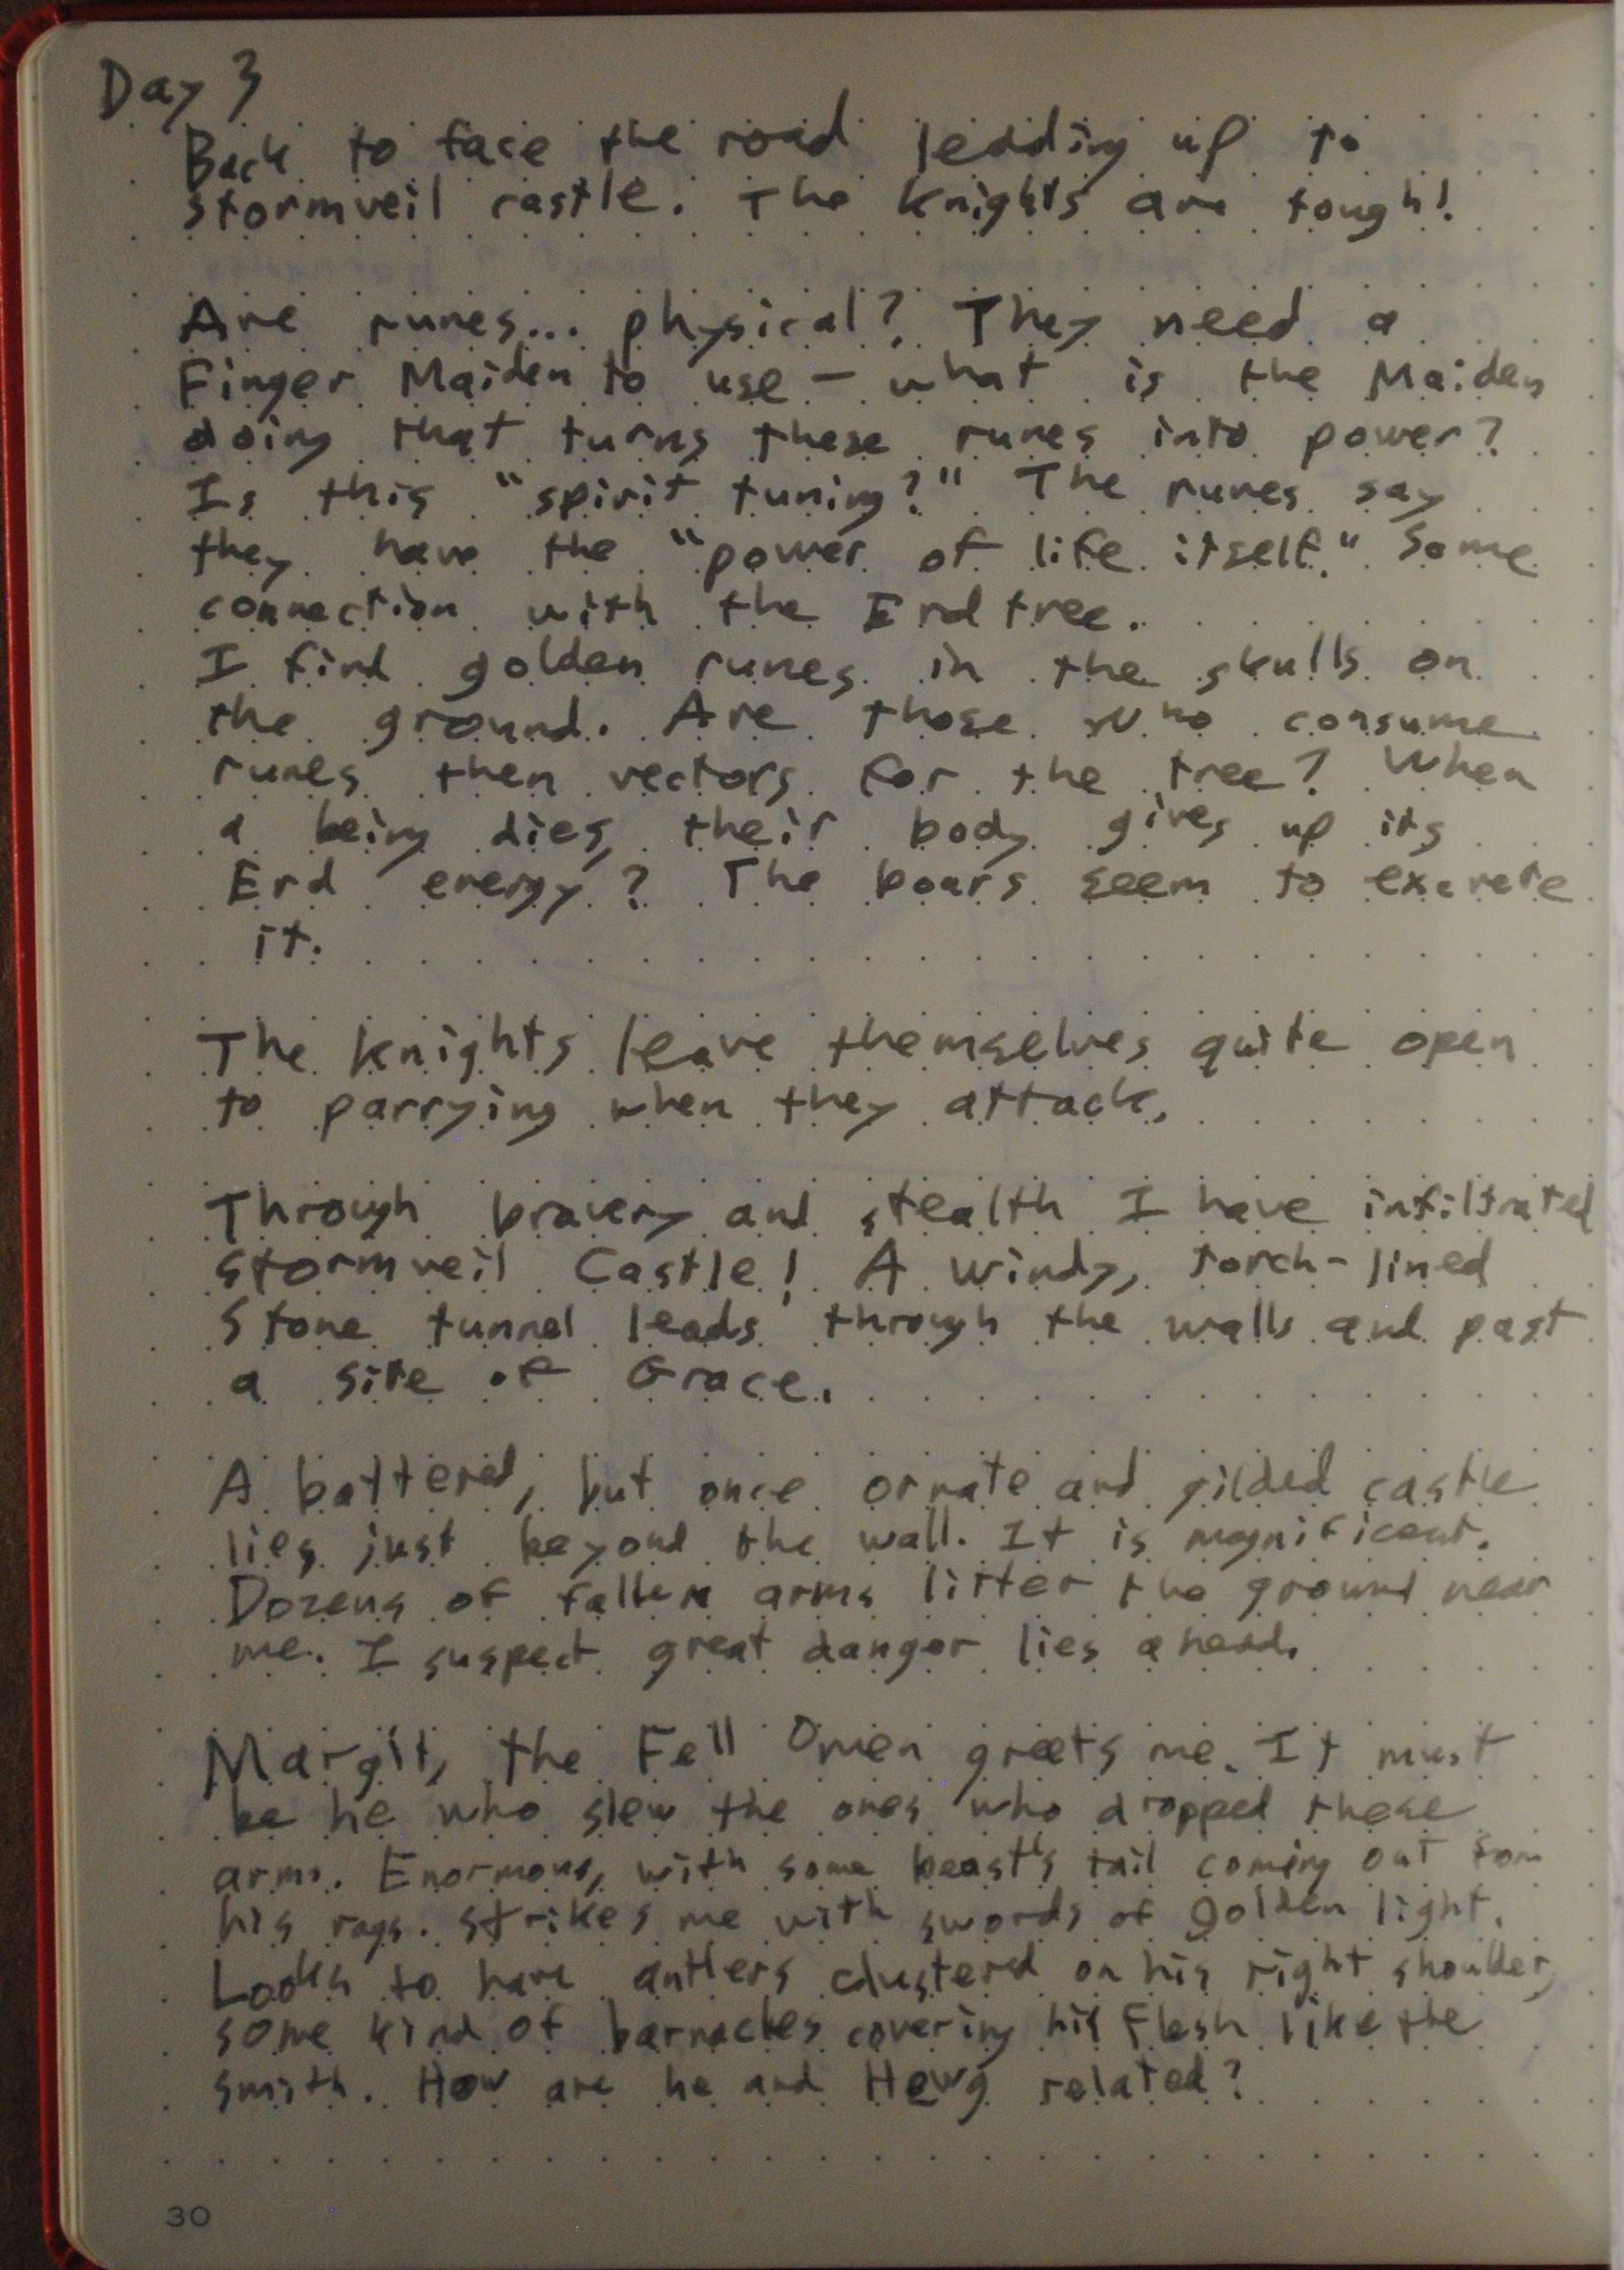 Day 3
Back to face the road leading up to
Stormveil castle. The Knights are tough!
Are runes... physical? They need a
Finger Maiden to use - what is the Maiden
doing that turns these runes into power?
Is this "spirit tuning?" The runes say
they have the "power of life itself." Some
connection with the Erdtree.
I find golden runes in the skulls on
the ground. Are those who consume
runes then vectors for the tree? When
a being dies, their body gives up its
Erd energy? The boars seem to excrete
it.
The Knights leave themselves quite open
to parrying when they attack.
Through bravery and stealth I have infiltrated
Stormveil Castle! A windy, torch-lined
Stone tunnel leads through the walls and past
a site of Grace.
A battered, but once ornate and gilded castle
lies just beyond the wall. It is magnificent.
Dozens of fallen arms litter the ground near
me. I suspect great danger lies ahead.
Margit, the Fell Omen greets me. It must
be he who slew the ones who dropped these
arms. Enormous, with some beast's tail coming out from
his rags. Strikes me with swords of golden light.
Looks to have antlers clustered on his right shoulder,
some kind of barnacles covering his flesh like the
smith. How are he and Hewg related?
30